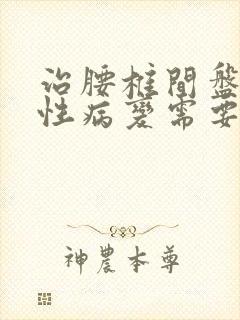 治腰椎間盤
性病變需要
神農本尊